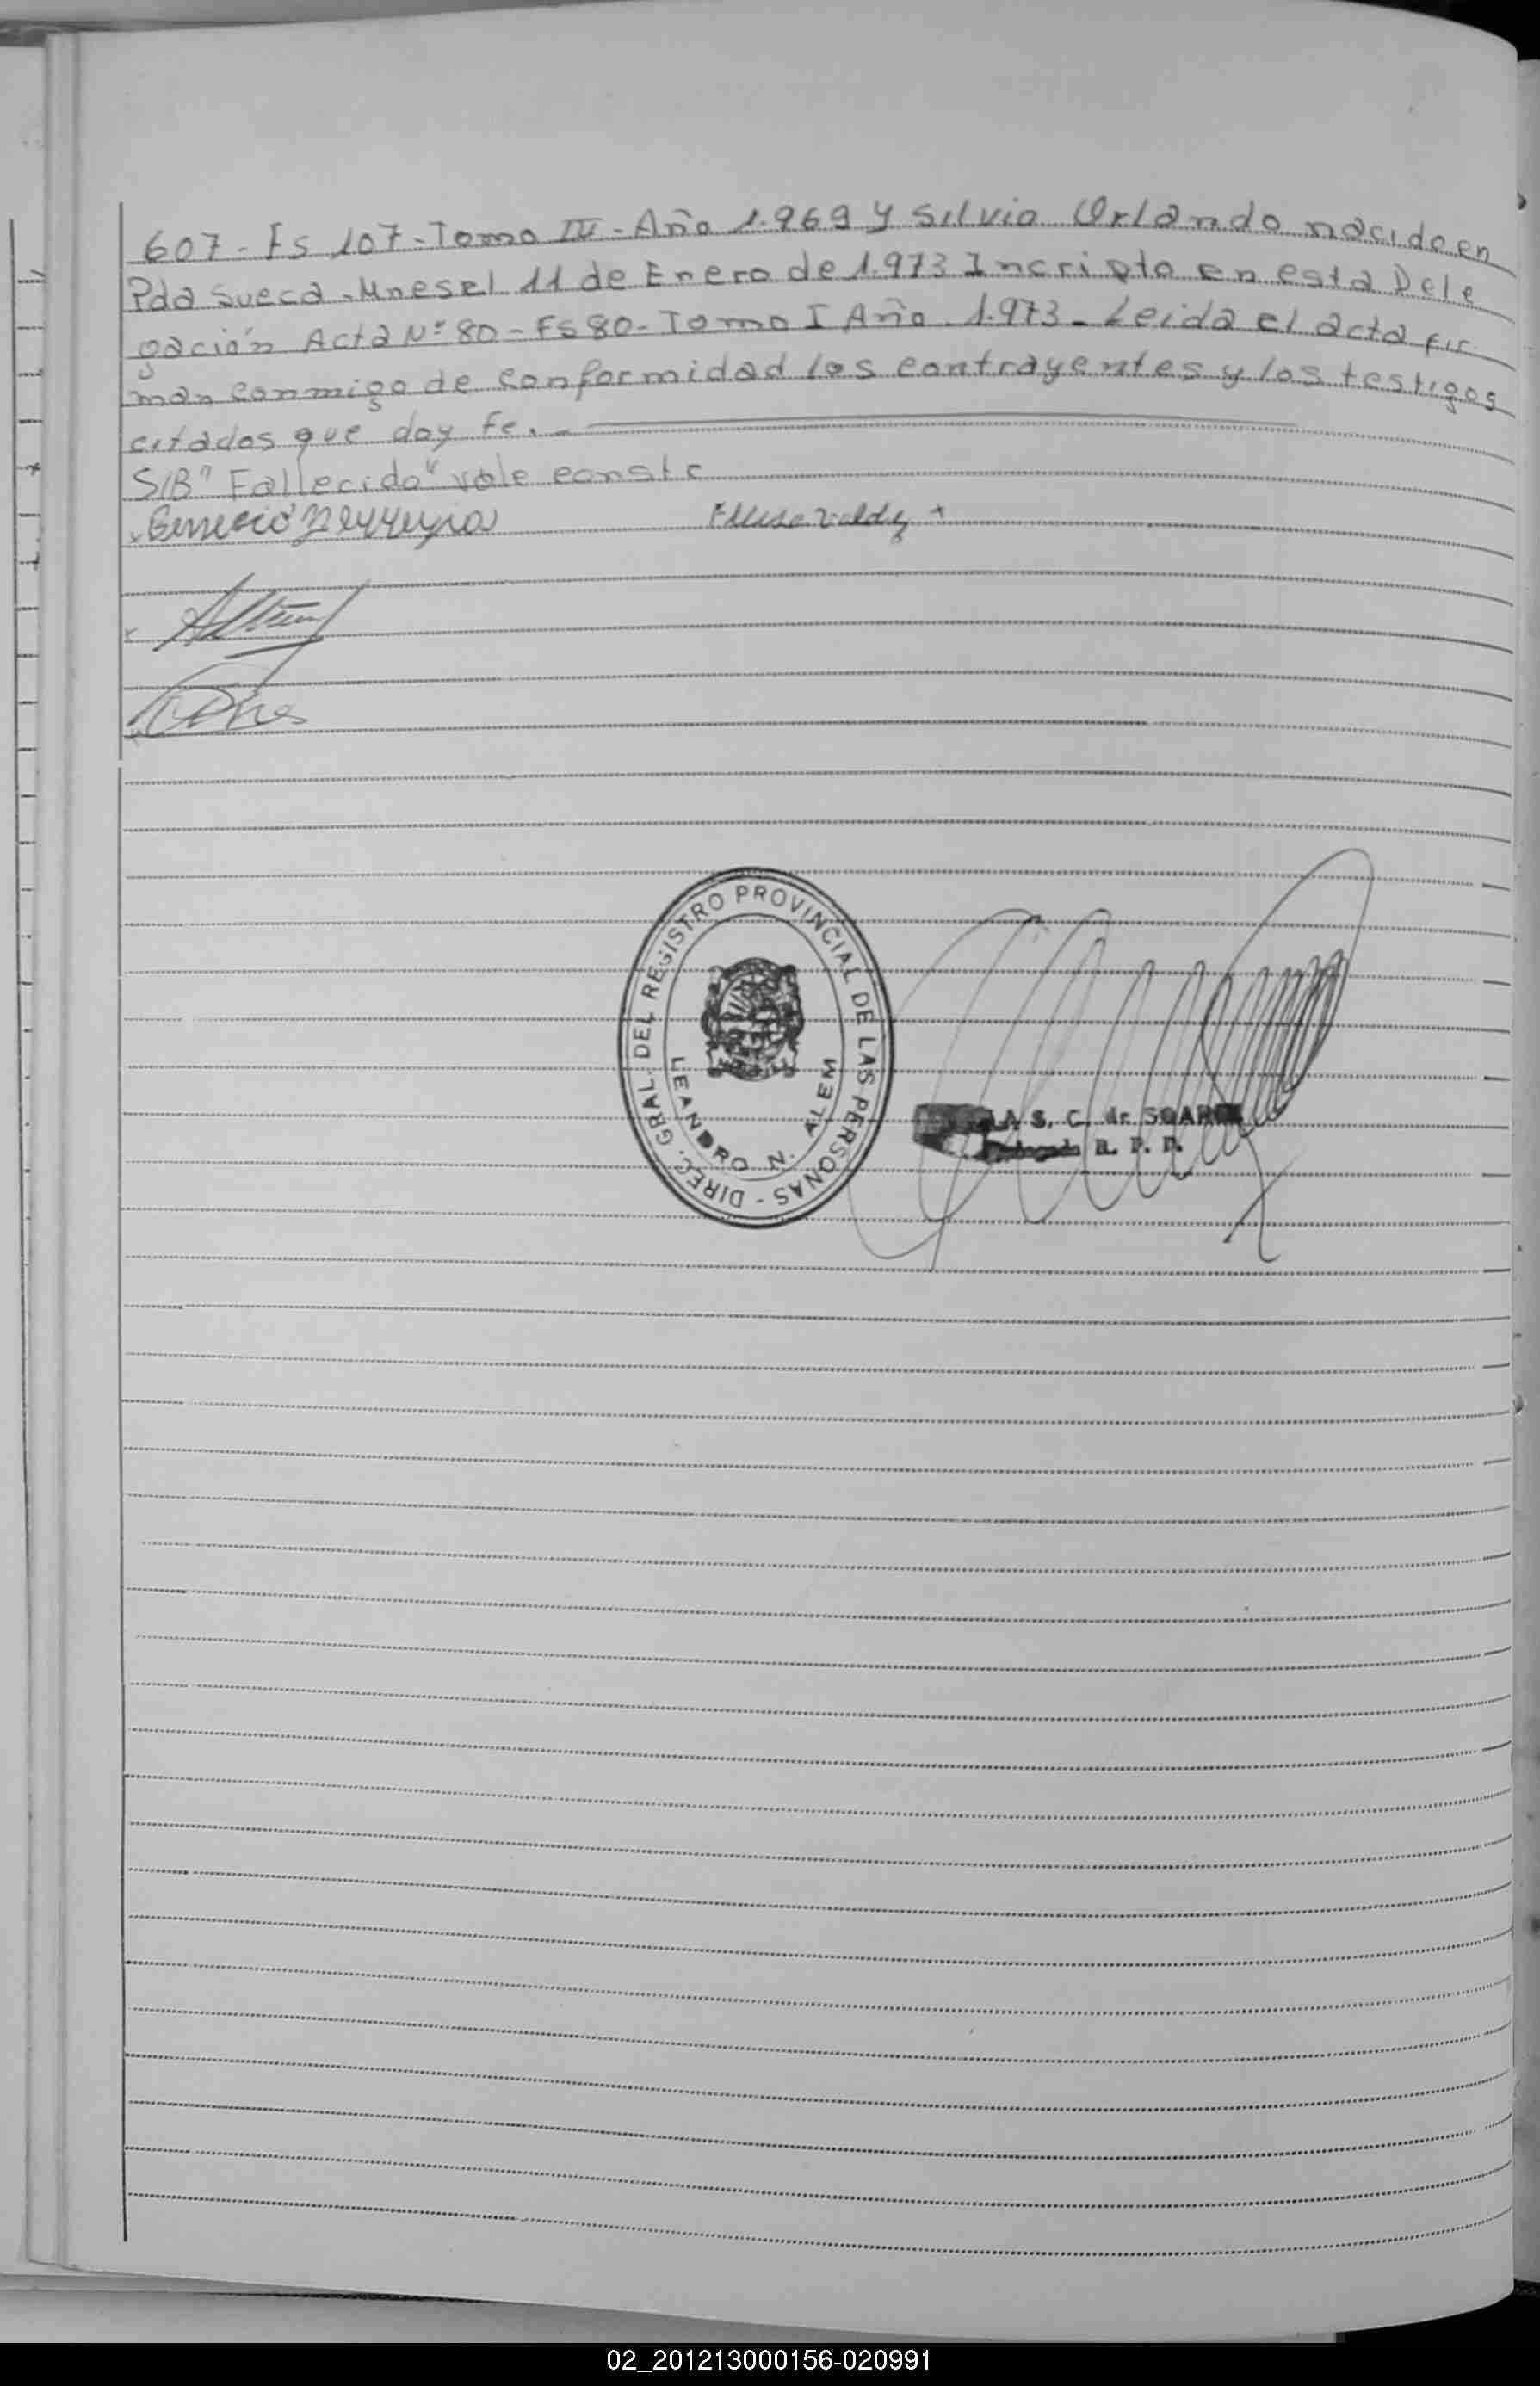 607 - Fs 107 - Tomo III - Año 1.969 y Silvio Orlando nacido en
Pda Sueca - Mnes el 11 de Enero de 1.973 Incripto en esta Dele
gación Acta Nº 80 - Fs 80 - Tomo I Año 1.973 - Leida el acta fir
man conmigo de conformidad los contrayentes y los testigos
citados que doy Fe. -
S/B "Fallecido" vale conste
DIREC. GRAL. DEL REGISTRO PROVINCIAL DE LAS PERSONAS -
LEANDRO N. ALEM
A S. C. de SOAR
R. P. P.
02_201213000156-020991